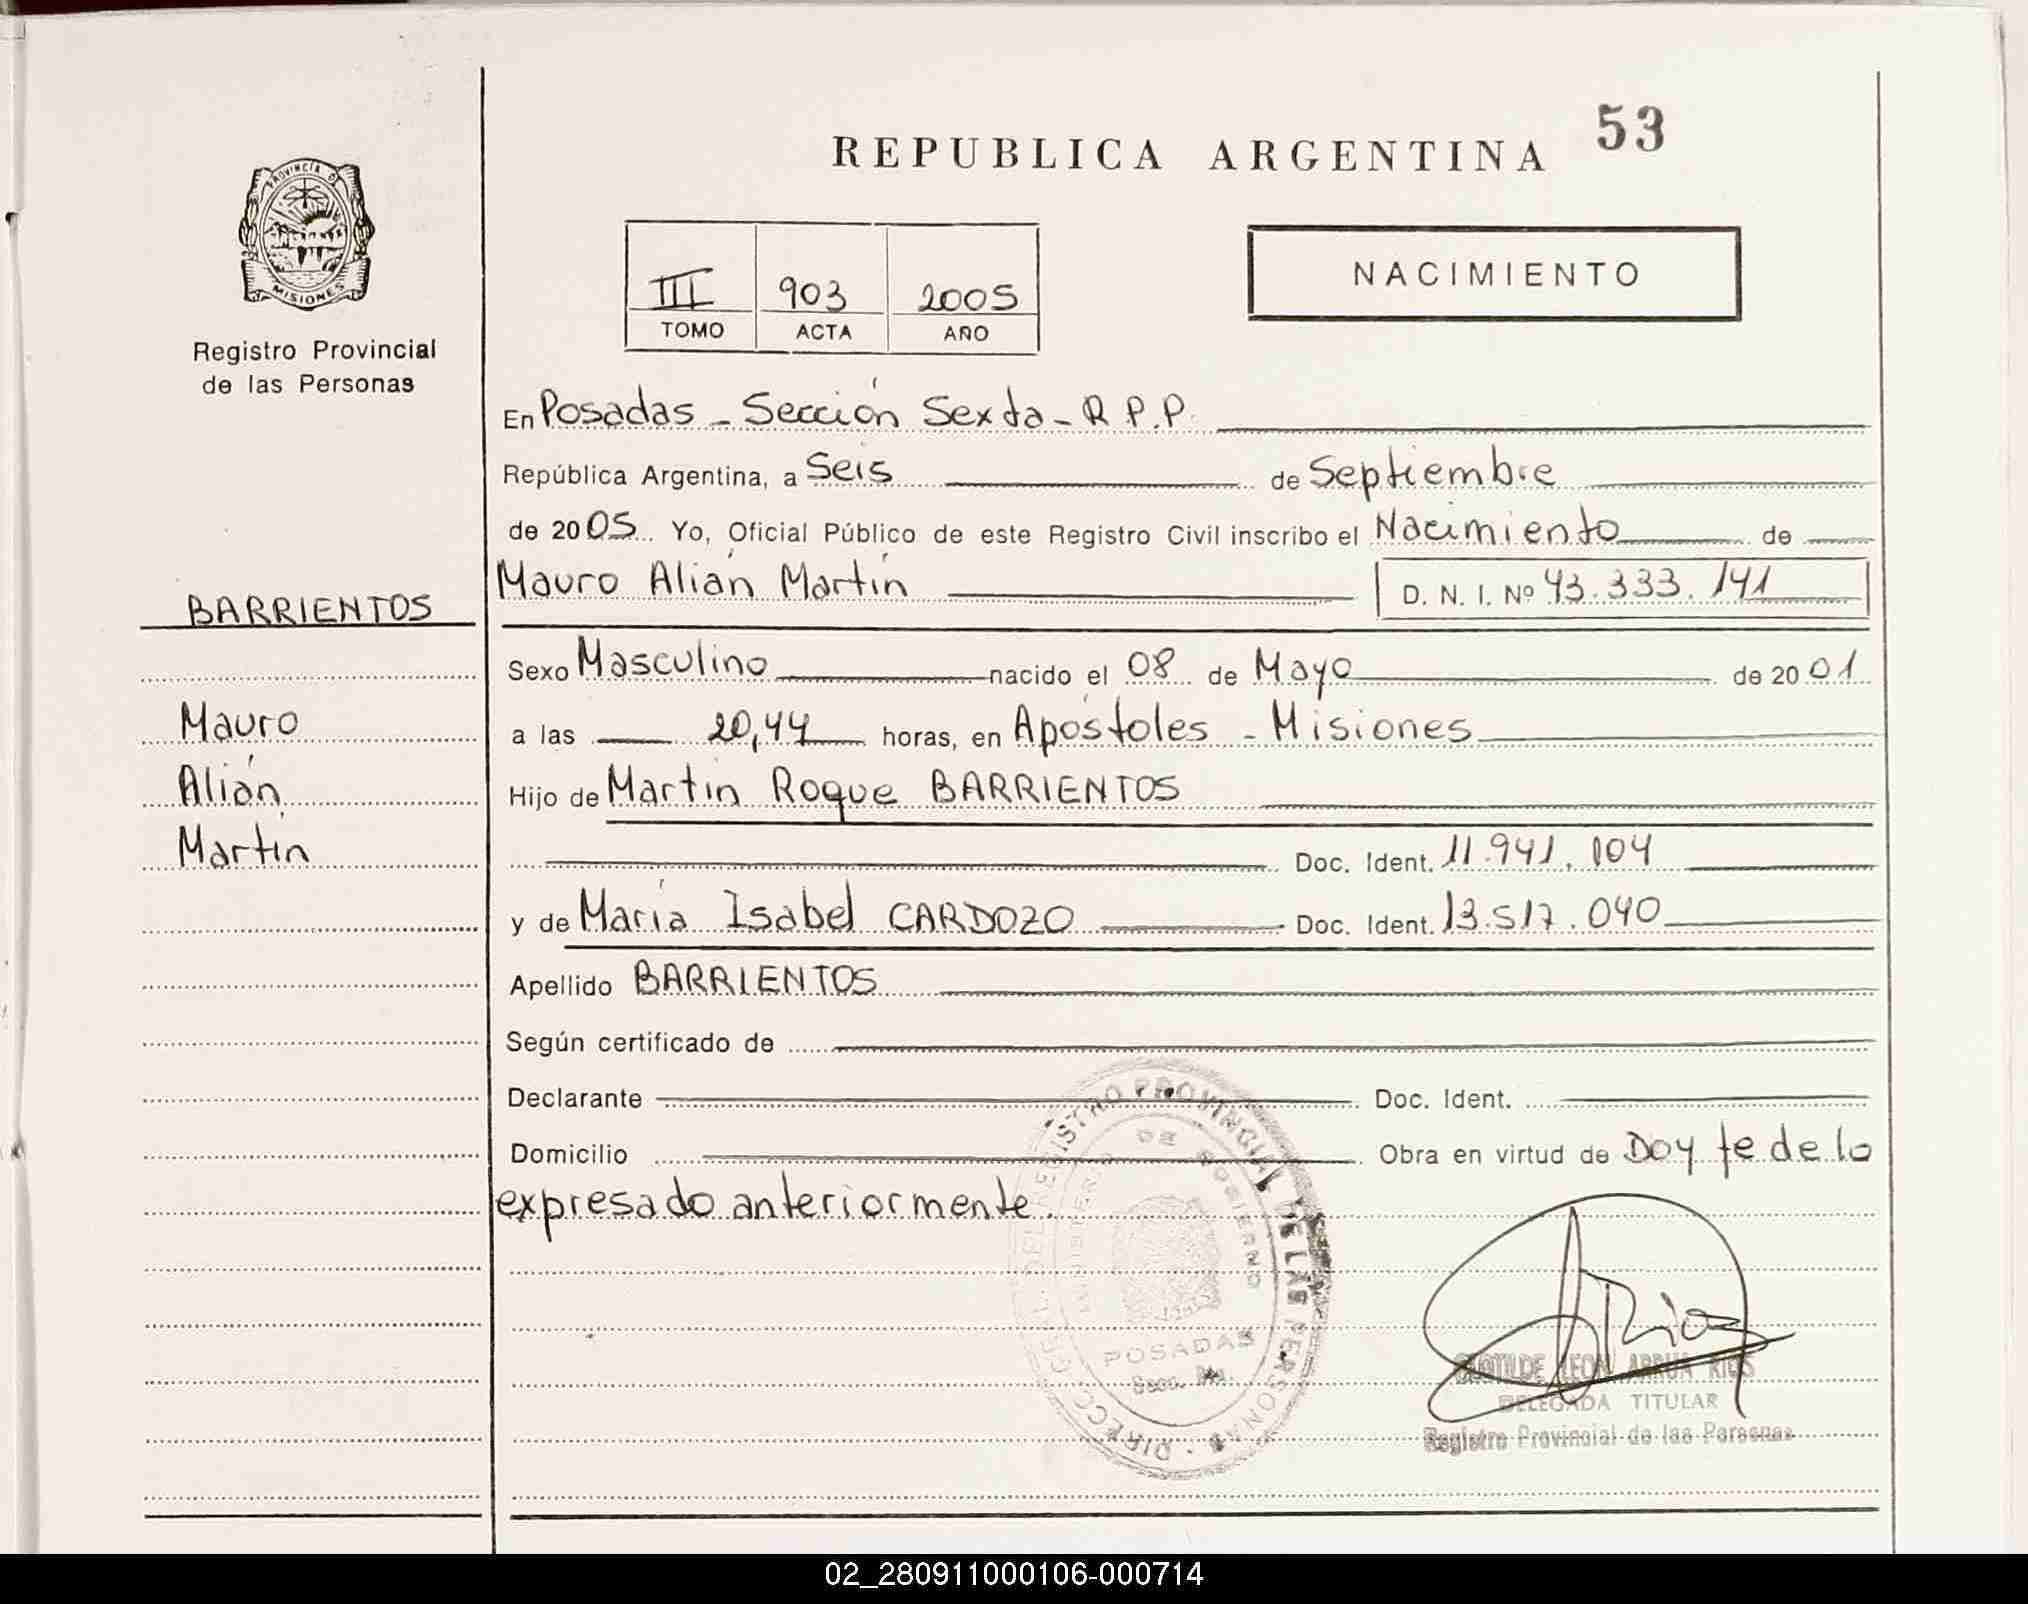 53
REPUBLICA ARGENTINA
PROVINCIA D
MISIONES
Registro Provincial
de las Personas
III 903 2005
TOMO ACTA AÑO
NACIMIENTO
En Posadas - Sección Sexta - R.P.P.
República Argentina, a Seis de Septiembre
de 2005 Yo, Oficial Público de este Registro Civil inscribo el Nacimiento de
Mauro Alián Martín D. N. I. Nº 43.333.141
BARRIENTOS
Sexo Masculino nacido el 08 de Mayo de 2001
Mauro
a las 20,44 horas, en Apóstoles - Misiones
Alián
Hijo de Martin Roque BARRIENTOS
Martín
Doc. Ident. 11.941.104
y de María Isabel CARDOZO Doc. Ident. 13.517.040
Apellido BARRIENTOS
Según certificado de
Declarante Doc. Ident.
Domicilio Obra en virtud de Doy fe de lo
expresado anteriormente.
DIRECC. GRAL. DEL REGISTRO PROVINCIAL DE LAS PERSONAS
MINISTERIO DE GOBIERNO
POSADAS
ARios
CLOTILDE LEON ARRUA RIOS
DELEGADA TITULAR
Registro Provincial de las Personas
02_280911000106-000714